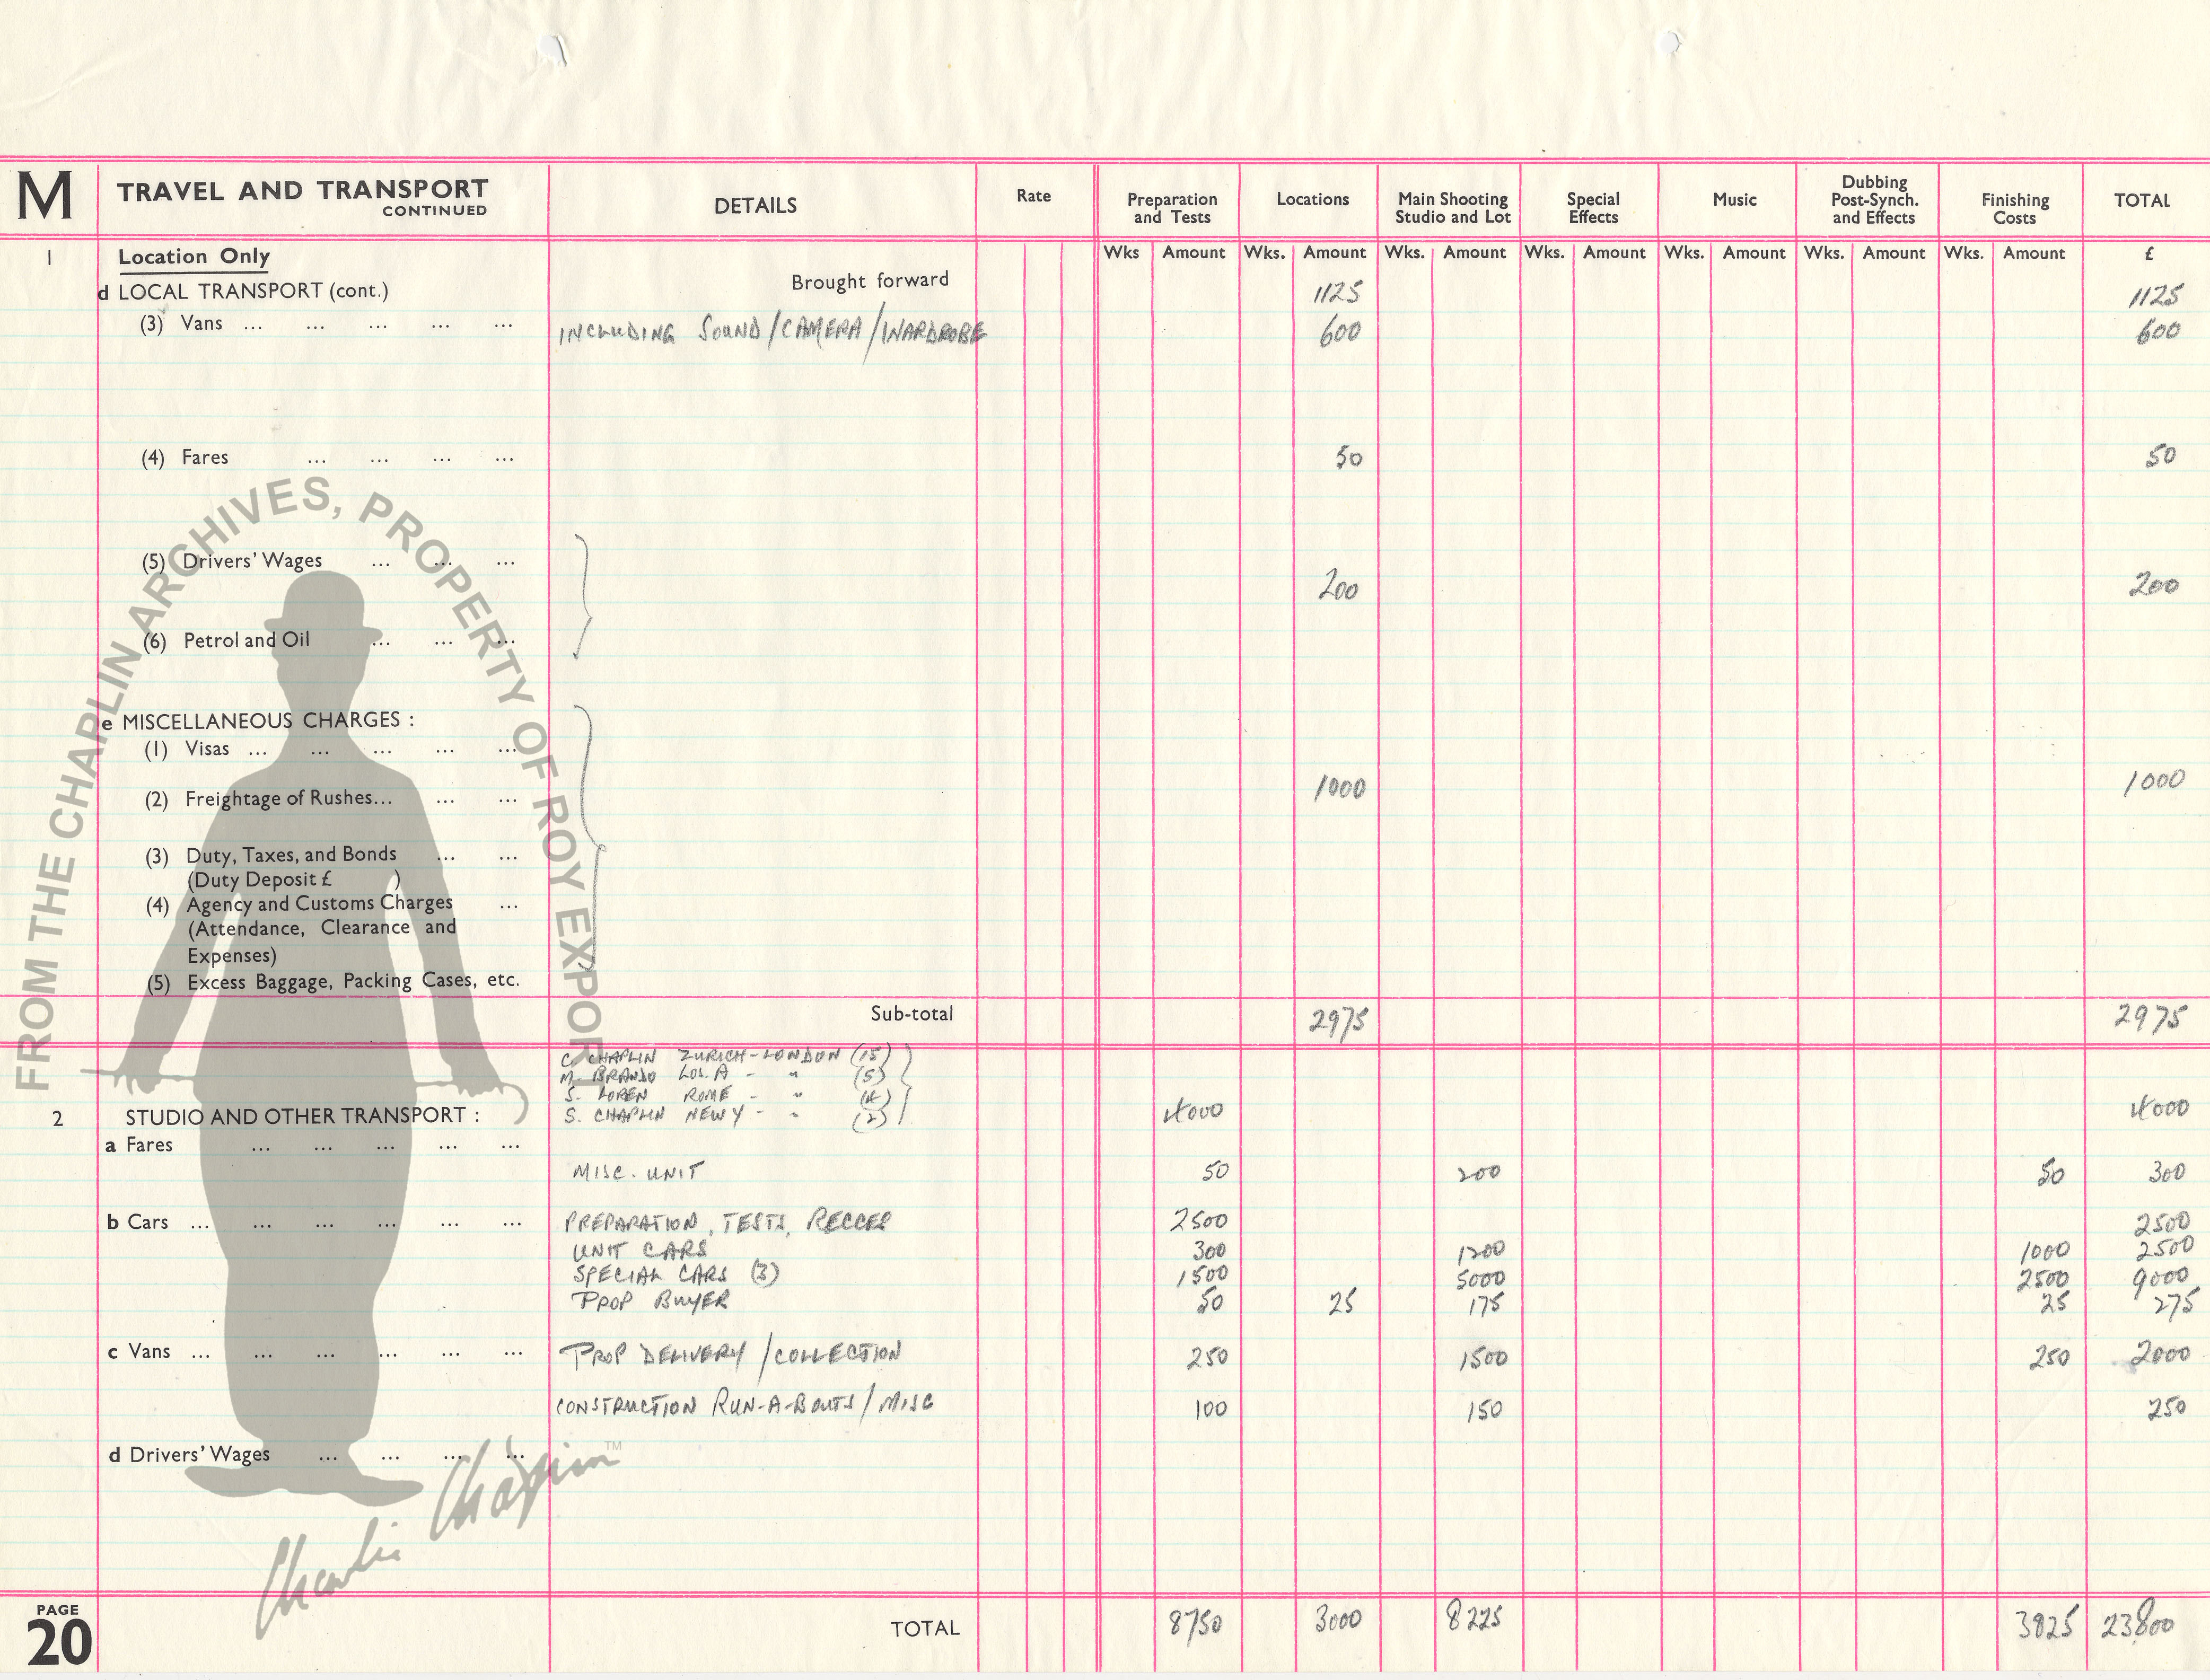 M TRAVEL AND TRANSPORT CONTINUED DETAILS Rate Preparation and Tests Locations Main Shooting Studio and Lot Special Effects Music Dubbing Post-Synch. and Effects Finishing Costs TOTAL
1 Location Only Wks Amount Wks. Amount Wks. Amount Wks. Amount Wks. Amount Wks. Amount Wks. Amount £
d LOCAL TRANSPORT (cont.) Brought forward 1125 1125
(3) Vans ... ... ... ... ... INCLUDING SOUND/CAMERA/WARDROBE 600 600
(4) Fares ... ... ... ... 50 50
(5) Drivers' Wages ... ... ...
200 200
(6) Petrol and Oil ... ... ...
e MISCELLANEOUS CHARGES :
(1) Visas ... ... ... ... ...
(2) Freightage of Rushes... ... ... 1000 1000
(3) Duty, Taxes, and Bonds ... ...
(Duty Deposit £ )
(4) Agency and Customs Charges ...
(Attendance, Clearance and
Expenses)
(5) Excess Baggage, Packing Cases, etc.
Sub-total 2975 2975
C. CHAPLIN ZURICH-LONDON (15)
M. BRANDO LOS.A - " (5)
S. LOREN ROME - " (4)
2 STUDIO AND OTHER TRANSPORT : S. CHAPLIN NEW Y - " (2) 4000 4000
a Fares ... ... ... ... ...
MISC. UNIT 50 200 50 300
b Cars ... ... ... ... ... ... PREPARATION, TESTS, RECCES 2500 2500
UNIT CARS 300 1200 1000 2500
SPECIAL CARS (3) 1500 5000 2500 9000
PROP BUYER 50 25 175 25 275
c Vans ... ... ... ... ... ... PROP DELIVERY/COLLECTION 250 1500 250 2000
CONSTRUCTION RUN-A-BOUTS/MISC 100 150 250
d Drivers' Wages ... ... ... ...
PAGE
20 TOTAL 8750 3000 8225 3825 23,800
FROM THE CHAPLIN ARCHIVES, PROPERTY OF ROY EXPORT
Charlie Chaplin ™